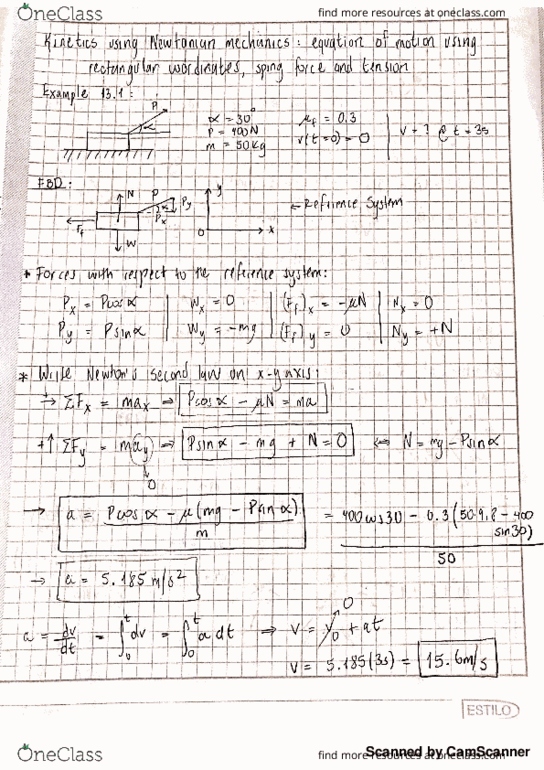 OneClass
find more resources at oneclass.com
Kinetics using Newtonian mechanics: equation of motion using
rectangular coordinates, sping force and tension
Example 13.1:
P
α
α = 30°
P = 400N
m = 50kg
μf = 0.3
v(t=0) = 0
v = ? @ t = 3s
FBD:
N
P
α
Py
Px
Ff
W
y
x
O
← Refrience System
* Forces with respect to the reference system:
Px = Pcosα
Wx = 0
(Ff)x = -μN
Nx = 0
Py = Psinα
Wy = -mg
(Ff)y = 0
Ny = +N
* Write Newton's second law on x-y axis:
→+ ΣFx = max ⇒ Pcosα - μN = ma
+↑ ΣFy = may ⇒ Psinα - mg + N = 0 ⇔ N = mg - Psinα
0
→ a = Pcosα - μ(mg - Psinα) / m = 400cos30 - 0.3(50·9.8 - 400 sin30) / 50
→ a = 5.185 m/s²
a = dv/dt = ∫₀ᵗ dv = ∫₀ᵗ a dt ⇒ v = v₀ + at
0
v = 5.185(3s) = 15.6m/s
ESTILO
OneClass
find more resources at oneclass.com
Scanned by CamScanner